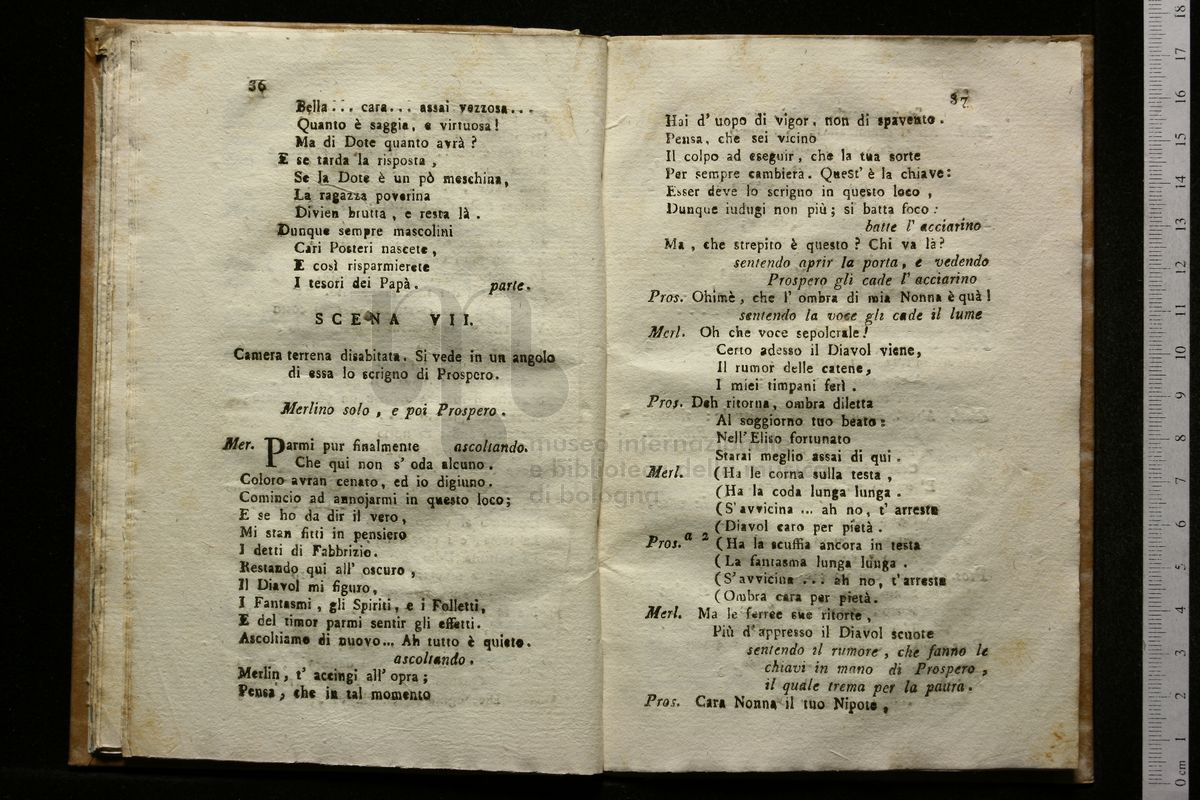 36
Bella... cara... assai vezzosa...
Quanto è saggia, e virtuosa!
Ma di Dote quanto avrà?
E se tarda la risposta,
Se la Dote è un pò meschina,
La ragazza poverina
Divien brutta, e resta là.
Dunque sempre mascolini
Cari Posteri nascete,
E così risparmierete
I tesori dei Papà. parte.
SCENA VII.
Camera terrena disabitata. Si vede in un angolo
di essa lo scrigno di Prospero.
Merlino solo, e poi Prospero.
Mer. Parmi pur finalmente ascoltando.
Che qui non s' oda alcuno.
Coloro avran cenato, ed io digiuno.
Comincio ad annojarmi in questo loco;
E se ho da dir il vero,
Mi stan fitti in pensiero
I detti di Fabbrizio.
Restando qui all' oscuro,
Il Diavol mi figuro,
I Fantasmi, gli Spiriti, e i Folletti,
E del timor parmi sentir gli effetti.
Ascoltiamo di nuovo... Ah tutto è quieto.
ascoltando.
Merlin, t' accingi all' opra;
Pensa, che in tal momento
37
Hai d' uopo di vigor, non di spavento.
Pensa, che sei vicino
Il colpo ad eseguir, che la tua sorte
Per sempre cambierà. Quest' è la chiave:
Esser deve lo scrigno in questo loco,
Dunque iudugi non più; si batta foco:
batte l' acciarino
Ma, che strepito è questo? Chi va là?
sentendo aprir la porta, e vedendo
Prospero gli cade l' acciarino
Pros. Ohimè, che l' ombra di mia Nonna è quà!
sentendo la voce gli cade il lume
Merl. Oh che voce sepolcrale!
Certo adesso il Diavol viene,
Il rumor delle catene,
I miei timpani ferì.
Pros. Deh ritorna, ombra diletta
Al soggiorno tuo beato:
Nell' Eliso fortunato
Starai meglio assai di qui.
Merl. (Ha le corna sulla testa,
(Ha la coda lunga lunga.
(S' avvicina ... ah no, t' arresta
(Diavol caro per pietà.
Pros. a 2 (Ha la scuffia ancora in testa
(La fantasma lunga lunga.
(S' avvicina ... ah no, t' arresta
(Ombra cara per pietà.
Merl. Ma le ferree sue ritorte,
Più d' appresso il Diavol scuote
sentendo il rumore, che fanno le
chiavi in mano di Prospero,
il quale trema per la paura.
Pros. Cara Nonna il tuo Nipote,
museo internazionale
e biblioteca della musica
di bologna
0 cm 1 2 3 4 5 6 7 8 9 10 11 12 13 14 15 16 17 18